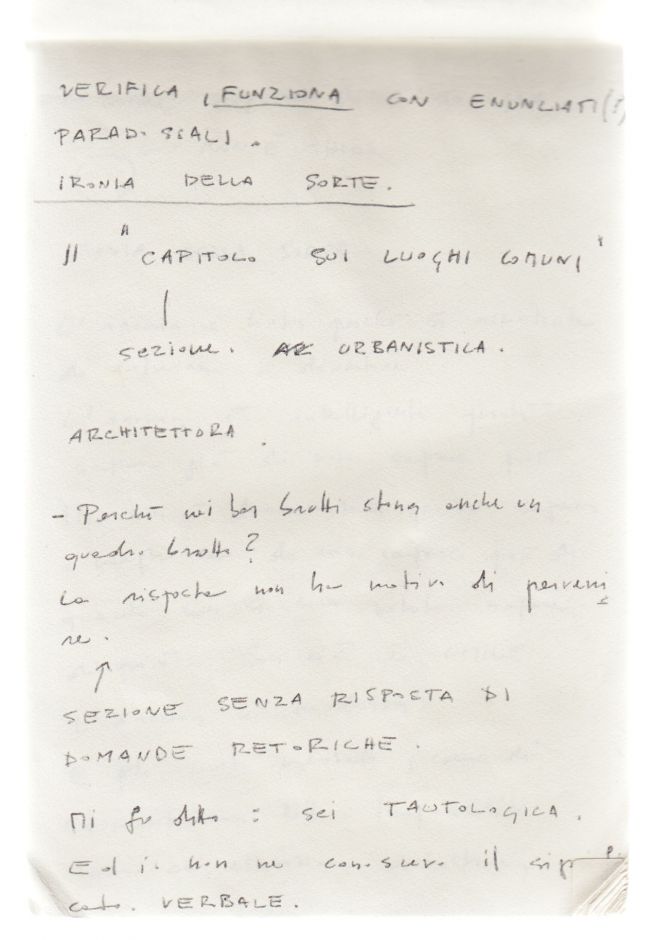 VERIFICA, FUNZIONA CON ENUNCIATI(?)
PARADOSSALI.
IRONIA DELLA SORTE.
// "CAPITOLO SUI LUOGHI COMUNI"
|
sezione. AR URBANISTICA.
ARCHITETTORA.
- Perché nei bar brutti stona anche un
quadro brutto?
La risposta non ha motivo di perveni
re.
↑
SEZIONE SENZA RISPOSTA DI
DOMANDE RETORICHE.
Mi fu detto: sei TAUTOLOGICA.
Ed io non ne conoscevo il sig
cato. VERBALE.